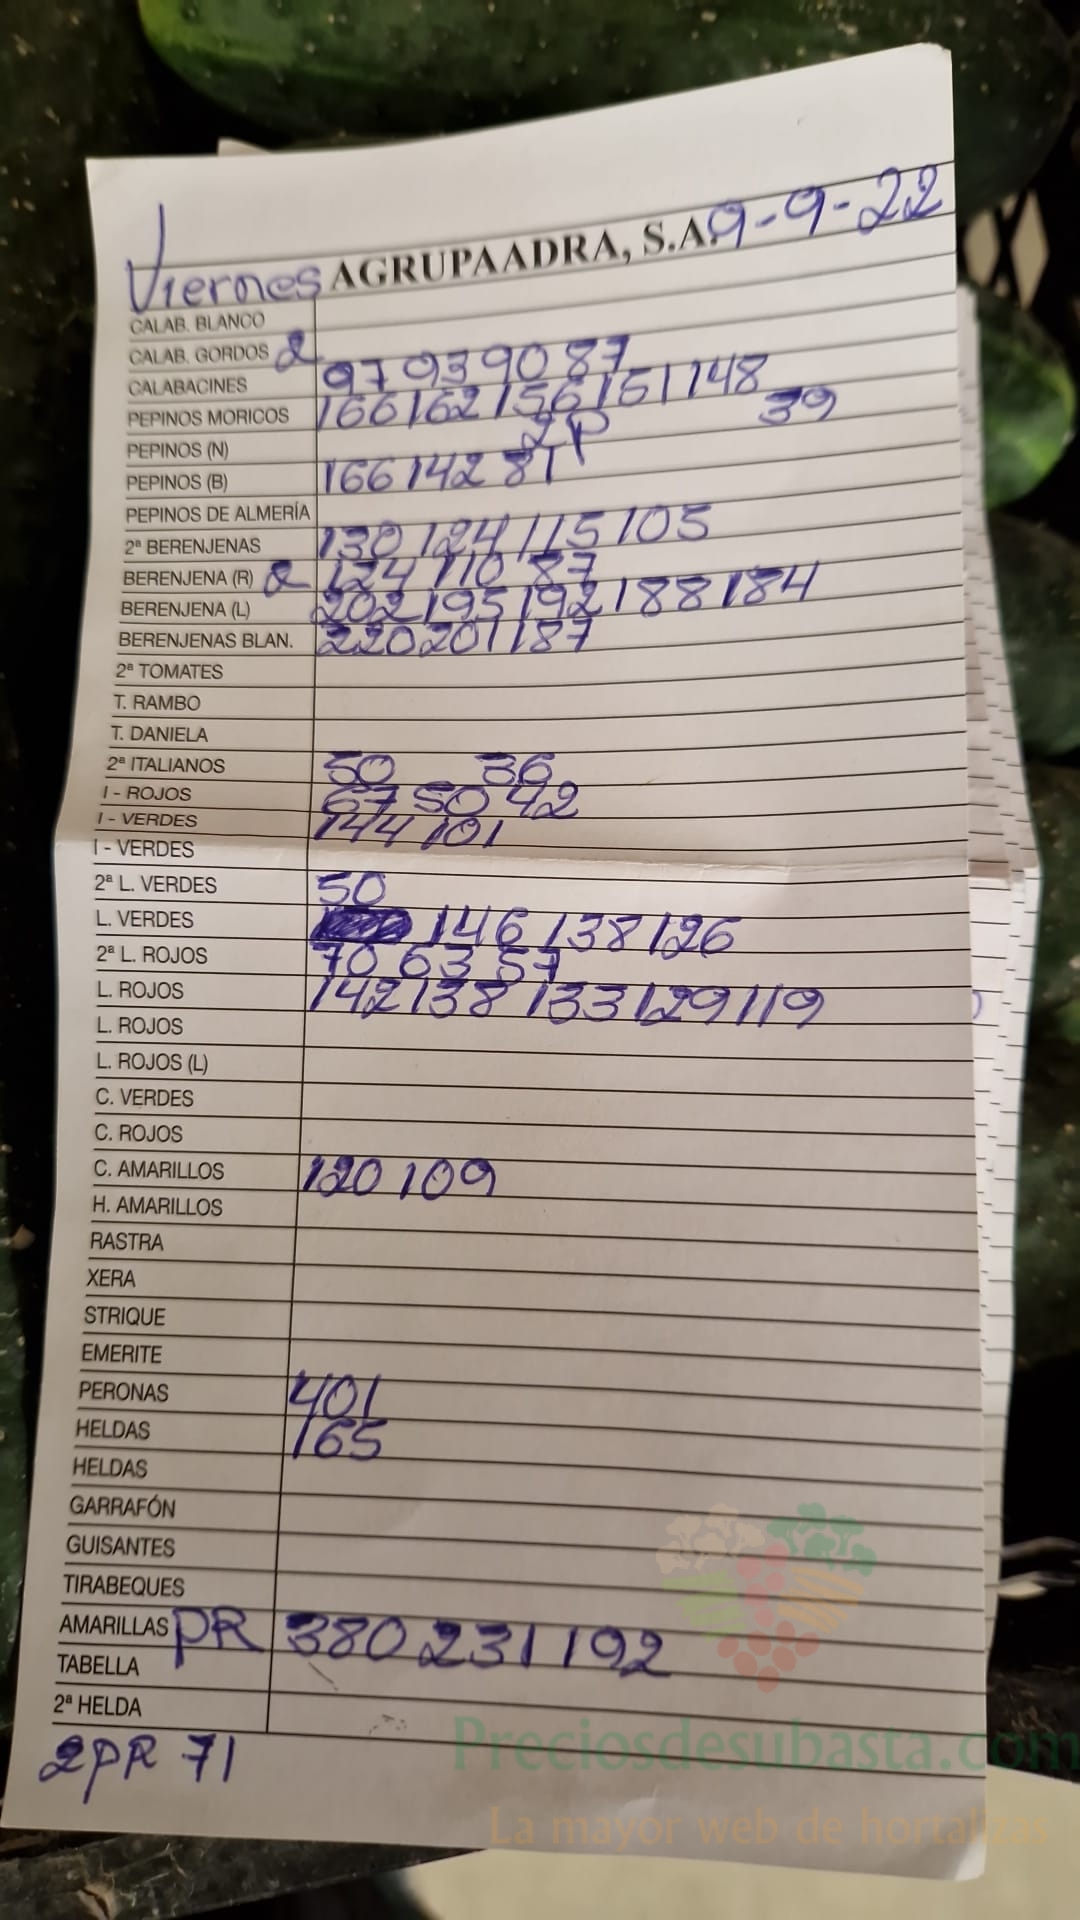 Viernes AGRUPAADRA, S.A. 9-9-22
CALAB. BLANCO
CALAB. GORDOS 2 97 93 90 87
CALABACINES 166 162 156 151 148
PEPINOS MORICOS 2P 39
PEPINOS (N) 166 142 81
PEPINOS (B)
PEPINOS DE ALMERÍA 130 124 115 105
2ª BERENJENAS 124 110 87
BERENJENA (R) 2 202 195 192 188 184
BERENJENA (L) 220 201 187
BERENJENAS BLAN.
2ª TOMATES
T. RAMBO
T. DANIELA
2ª ITALIANOS 50 36
I - ROJOS 67 50 42
I - VERDES 144 101
I - VERDES
2ª L. VERDES 50
L. VERDES 146 138 126
2ª L. ROJOS 70 63 57
L. ROJOS 142 138 133 129 119
L. ROJOS
L. ROJOS (L)
C. VERDES
C. ROJOS
C. AMARILLOS 120 109
H. AMARILLOS
RASTRA
XERA
STRIQUE
EMERITE
PERONAS 401
HELDAS 165
HELDAS
GARRAFÓN
GUISANTES
TIRABEQUES
AMARILLAS PR 380 231 192
TABELLA
2ª HELDA
2PR 71
Preciosdesubasta.com
La mayor web de hortalizas